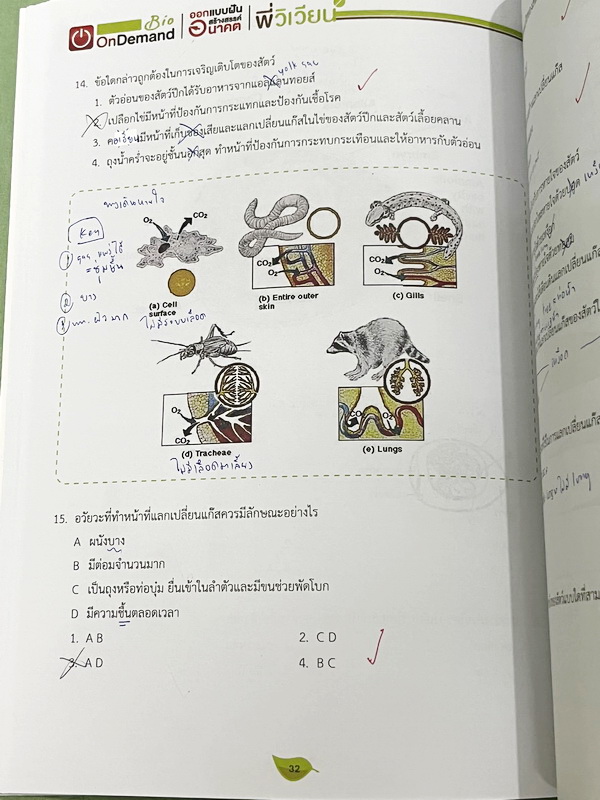 Bio
OnDemand
ออกแบบฝัน
สร้างสรรค์
อนาคต
พี่วิเวียน
14. ข้อใดกล่าวถูกต้องในการเจริญเติบโตของสัตว์
yolk sac
1. ตัวอ่อนของสัตว์ปีกได้รับอาหารจากแอลแลนทอยส์
2. เปลือกไข่มีหน้าที่ป้องกันการกระแทกและป้องกันเชื้อโรค
3. คอเรียนมีหน้าที่เก็บของเสียและแลกเปลี่ยนแก๊สในไข่ของสัตว์ปีกและสัตว์เลื้อยคลาน
4. ถุงน้ำคร่ำจะอยู่ชั้นนอกสุด ทำหน้าที่ป้องกันการกระทบกระเทือนและให้อาหารกับตัวอ่อน
ทางเดินหายใจ
Key
ชุ่มชื้น
② บาง
③ พท. ผิวมาก
O₂ CO₂
(a) Cell
surface
ไม่มีระบบเลือด
CO₂
O₂
(b) Entire outer
skin
CO₂
O₂
(c) Gills
O₂
CO₂
(d) Tracheae
ไม่มีเลือดมาเลี้ยง
CO₂ O₂
(e) Lungs
15. อวัยวะที่ทำหน้าที่แลกเปลี่ยนแก๊สควรมีลักษณะอย่างไร
A ผนังบาง
B มีต่อมจำนวนมาก
C เป็นถุงหรือท่อบุ๋ม ยื่นเข้าในลำตัวและมีขนช่วยพัดโบก
D มีความชื้นตลอดเวลา
1. A B 2. C D
3. A D 4. B C
32